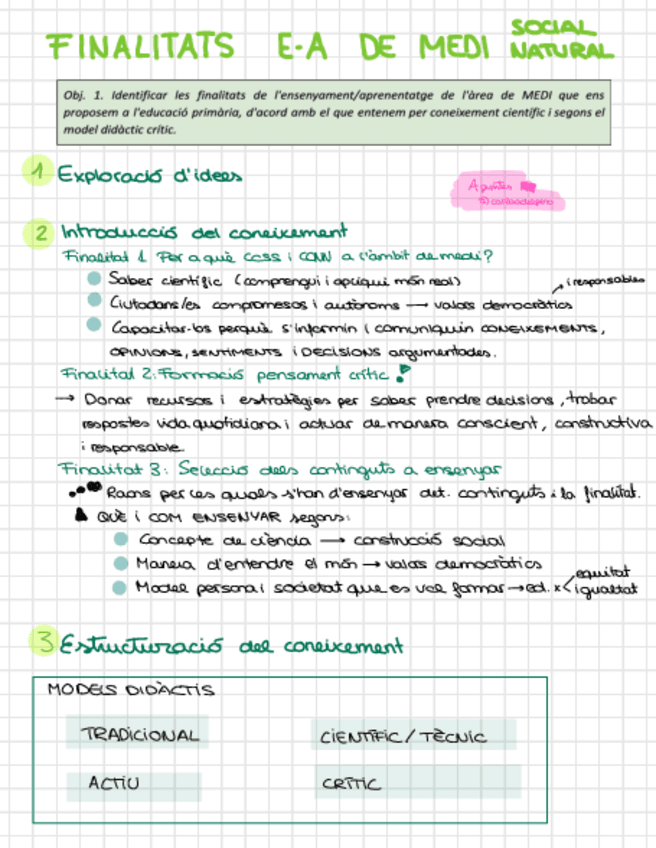 FINALITATS E-A DE MEDI SOCIAL NATURAL
Obj. 1. Identificar les finalitats de l'ensenyament/aprenentatge de l'àrea de MEDI que ens
proposem a l'educació primària, d'acord amb el que entenem per coneixement científic i segons el
model didàctic crític.
1 Exploració d'idees
Apuntes
2 Introducció del coneixement
Finalitat 1. Per a què CCSS i CCNN a l'àmbit de medi?
Saber científic (comprengui i apliqui món real)
i responsables
Ciutadans/es compromesos i autònoms → valors democràtics
Capacitar-los perquè s'informin i comuniquin CONEIXEMENTS,
OPINIONS, SENTIMENTS i DECISIONS argumentades.
Finalitat 2: Formació pensament crític !
→ Donar recursos i estratègies per saber prendre decisions, trobar
respostes vida quotidiana i actuar de manera conscient, constructiva
i responsable.
Finalitat 3: Selecció dels continguts a ensenyar
Raons per les quals s'han d'ensenyar det. continguts i la finalitat.
QUÈ i COM ENSENYAR segons:
Concepte de ciència → construcció social
Manera d'entendre el món → valors democràtics
Model persona i societat que es vol formar → ed. x equitat
igualtat
3 Estructuració del coneixement
MODELS DIDÀCTIS
TRADICIONAL
CIENTÍFIC / TÈCNIC
ACTIU
CRÍTIC